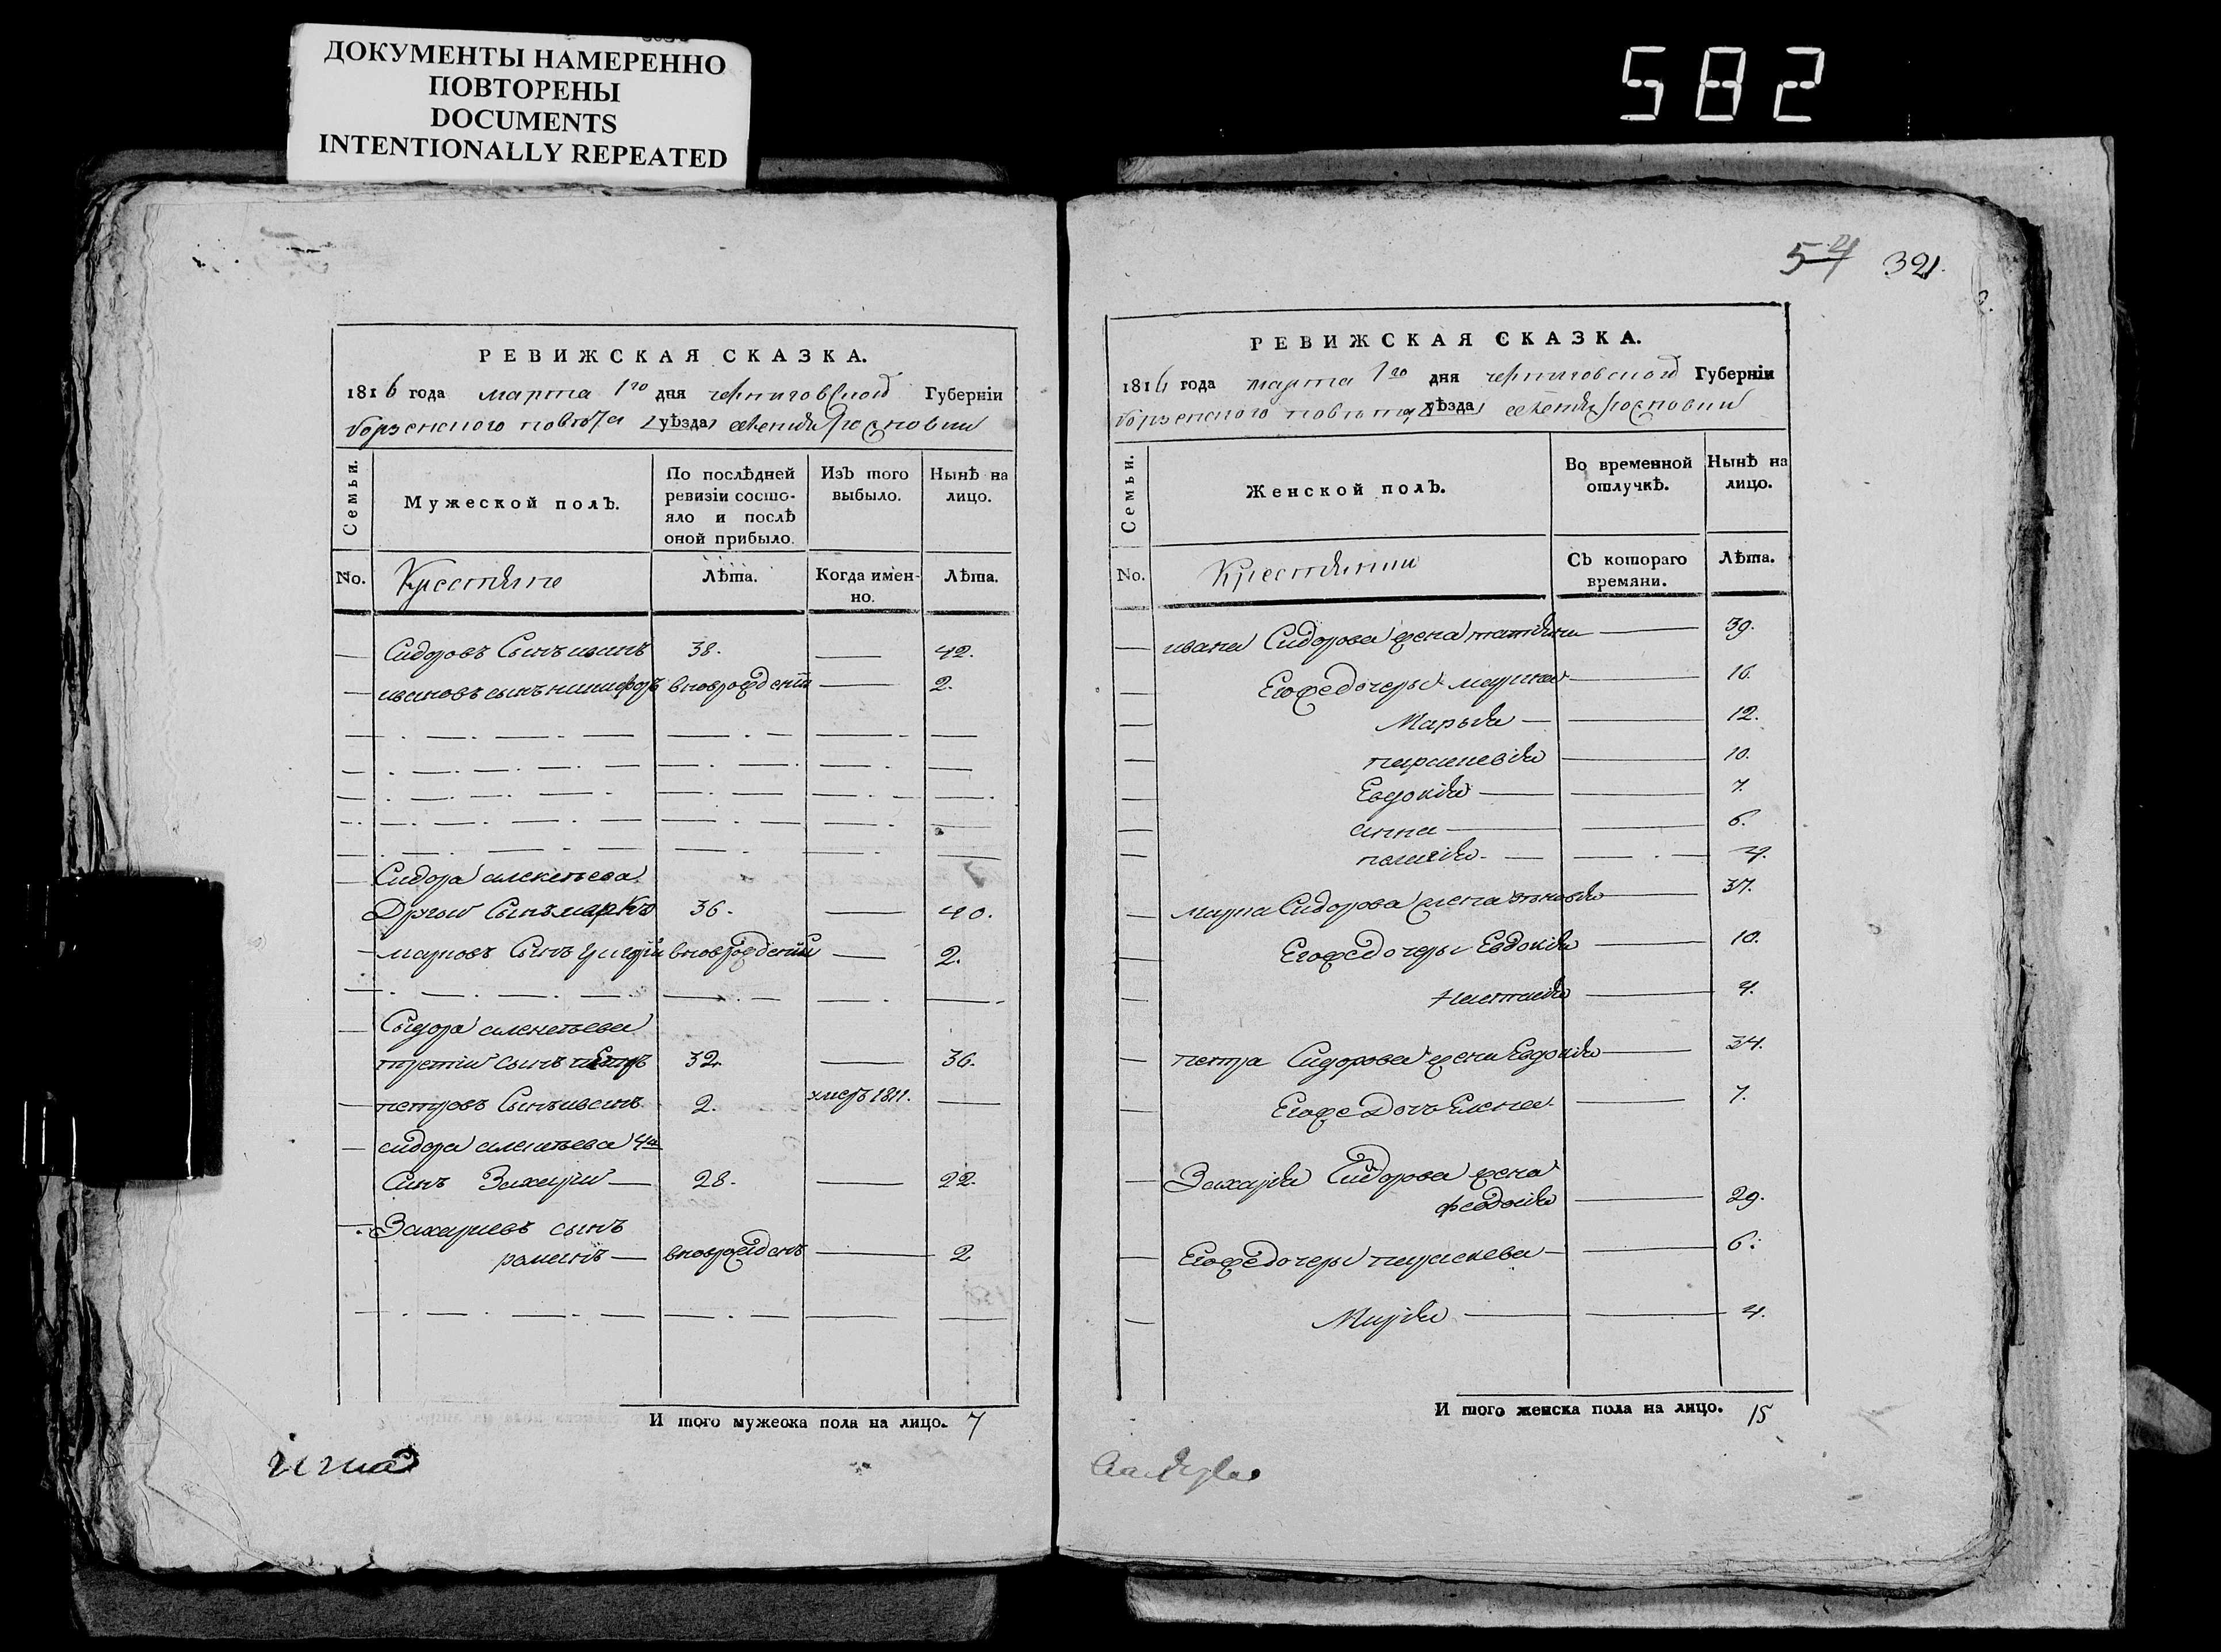 ДОКУМЕНТЫ НАМЕРЕННО
ПОВТОРЕНЫ
DOCUMENTS
INTENTIONALLY REPEATED
582
РЕВИЖСКАЯ СКАЗКА.
1816 года марта 1го дня черниговской Губерніи
борзенского повѣта уѣзда
Семьи.
Мужеской полъ.
По послѣдней
ревизіи состо-
яло и послѣ
оной прибыло.
Изъ того
выбыло.
Нынѣ на
лицо.
No.
Крестяне
Лѣта.
Когда имен-
но.
Лѣта.
Сидоровъ Сынъ иванъ 38. 42.
ивановъ сынъ никифоръ вноврожденій 2.
Сидора алексѣева
Другий Сынъ марко 36. 40.
марковъ Сынъ вноврожденій 2.
Сидора алексѣева
третій сынъ петръ 32. 36.
петровъ Сынъ иванъ 2. умеръ 1811.
сидора алексѣева 4й
Синъ Захарій 28. 22.
Захариевъ сынъ
романъ вноврожденъ 2
И того мужеска пола на лицо. 7
54 321.
РЕВИЖСКАЯ СКАЗКА.
1816 года марта 1го дня черниговской Губерніи
борзенского повѣта уѣзда
Семьи.
Женской полъ.
Во временной
отлучкѣ.
Нынѣ на
лицо.
No.
Крестянки
Съ котораго
времяни.
Лѣта.
ивана Сидорова жена татіяна 39.
Егожедочеры марина 16.
Марья 12.
параскевія 10.
Евдокія 7.
анна 6.
пелагія 4.
марка Сидорова жена 37.
Егожедочеры Евдокія 10.
Настасія 4.
петра Сидорова жена Евдокія 34.
Егоже дочь Елена 7.
Захарія Сидорова жена
феодосія 29.
Егожедочеры параскева 6.
Марія 4.
И того женска пола на лицо. 15